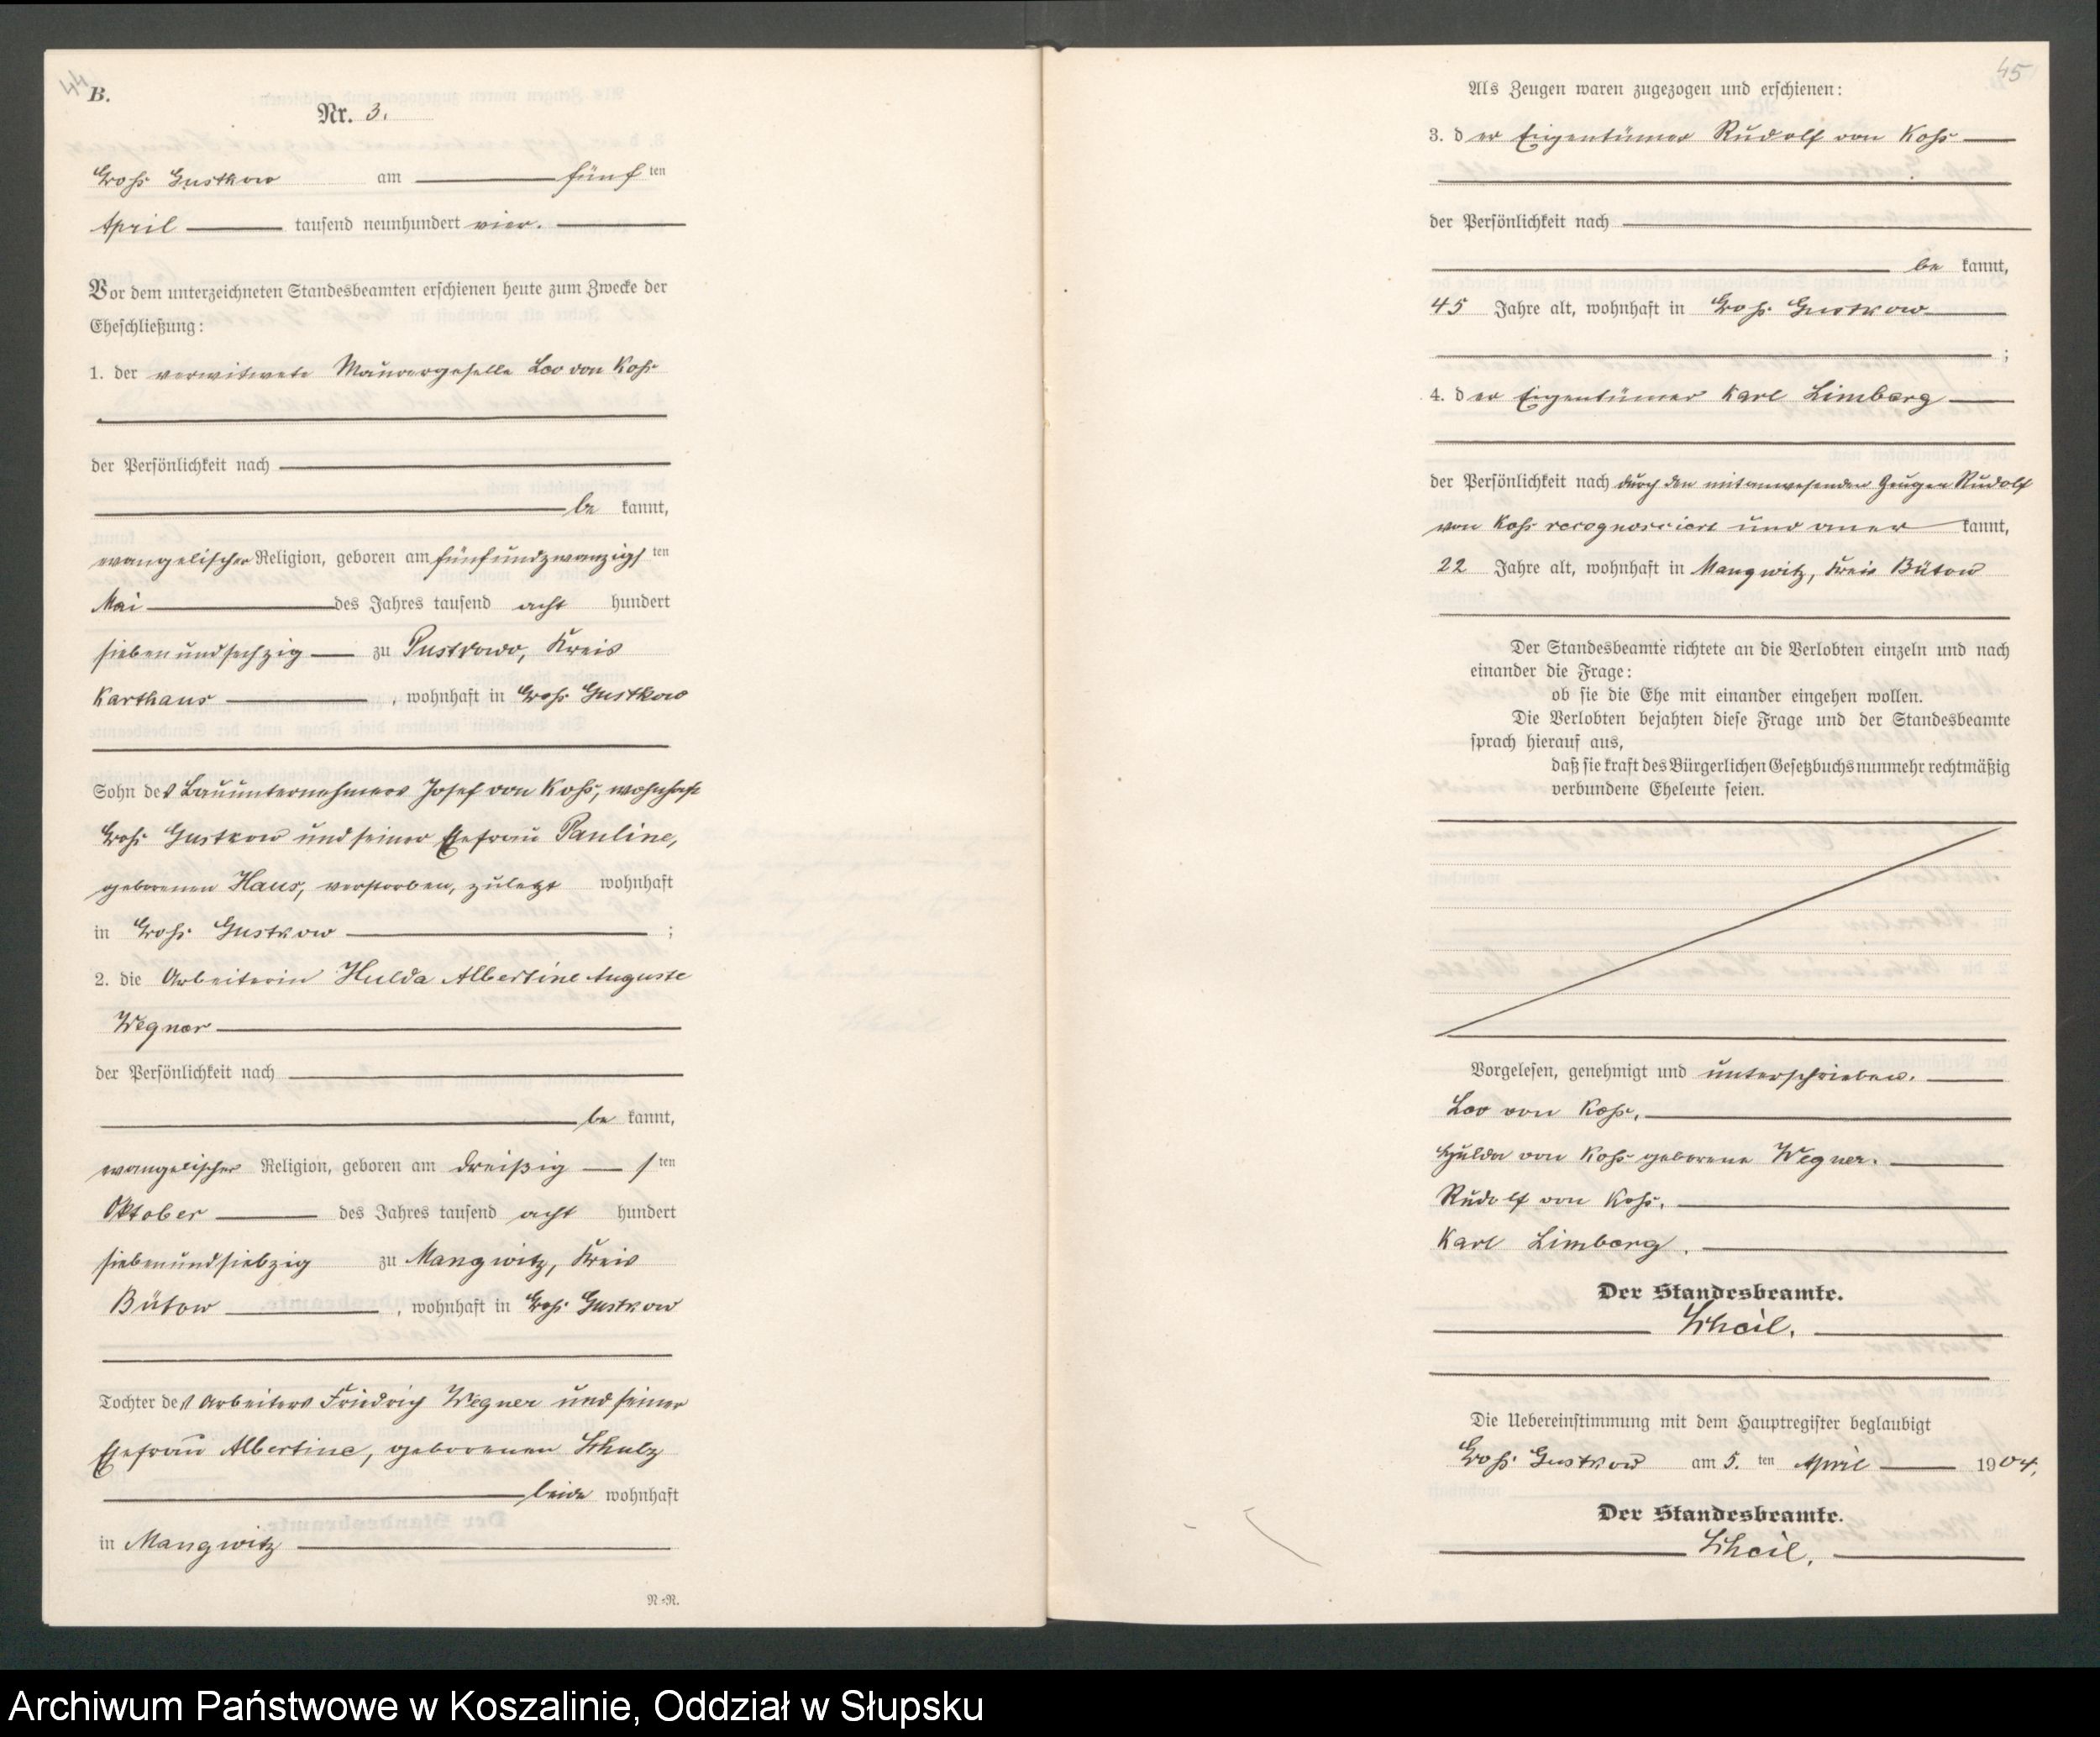 44
B.
Nr. 3.
Groß Gustkow am fünften
April tausend neunhundert vier.
Vor dem unterzeichneten Standesbeamten erschienen heute zum Zwecke der
Eheschließung:
1. der verwitwete Maurergeselle Leo von Koß
der Persönlichkeit nach
bekannt,
evangelischer Religion, geboren am fünfundzwanzigsten
Mai des Jahres tausend acht hundert
siebenundsechzig zu Pustkowo, Kreis
Karthaus, wohnhaft in Groß Gustkow
Sohn des Bauunternehmers Josef von Koß, wohnhaft
Groß Gustkow und seiner Ehefrau Pauline,
geborenen Haus, verstorben, zuletzt wohnhaft
in Groß Gustkow ;
2. die Arbeiterin Hulda Albertine Auguste
Wegner
der Persönlichkeit nach
bekannt,
evangelischer Religion, geboren am dreißigsten
Oktober des Jahres tausend acht hundert
siebenundsiebzig zu Mangwitz, Kreis
Bütow, wohnhaft in Groß Gustkow
Tochter des Arbeiters Friedrich Wegner und seiner
Ehefrau Albertine, geborenen Schulz
beide wohnhaft
in Mangwitz
N-N.
45
Als Zeugen waren zugezogen und erschienen:
3. der Eigentümer Rudolf von Koß
der Persönlichkeit nach
bekannt,
45 Jahre alt, wohnhaft in Groß Gustkow
;
4. der Eigentümer Karl Limberg
der Persönlichkeit nach durch den mitanwesenden Zeugen Rudolf
von Koß recognosciert und anerkannt,
22 Jahre alt, wohnhaft in Mangwitz, Kreis Bütow
Der Standesbeamte richtete an die Verlobten einzeln und nach
einander die Frage:
ob sie die Ehe mit einander eingehen wollen.
Die Verlobten bejahten diese Frage und der Standesbeamte
sprach hierauf aus,
daß sie kraft des Bürgerlichen Gesetzbuchs nunmehr rechtmäßig
verbundene Eheleute seien.
Vorgelesen, genehmigt und unterschrieben.
Leo von Koß.
Hulda von Koß geborene Wegner.
Rudolf von Koß.
Karl Limberg.
Der Standesbeamte.
Scheil.
Die Uebereinstimmung mit dem Hauptregister beglaubigt
Groß Gustkow am 5. ten April 1904.
Der Standesbeamte.
Scheil.
Archiwum Państwowe w Koszalinie, Oddział w Słupsku